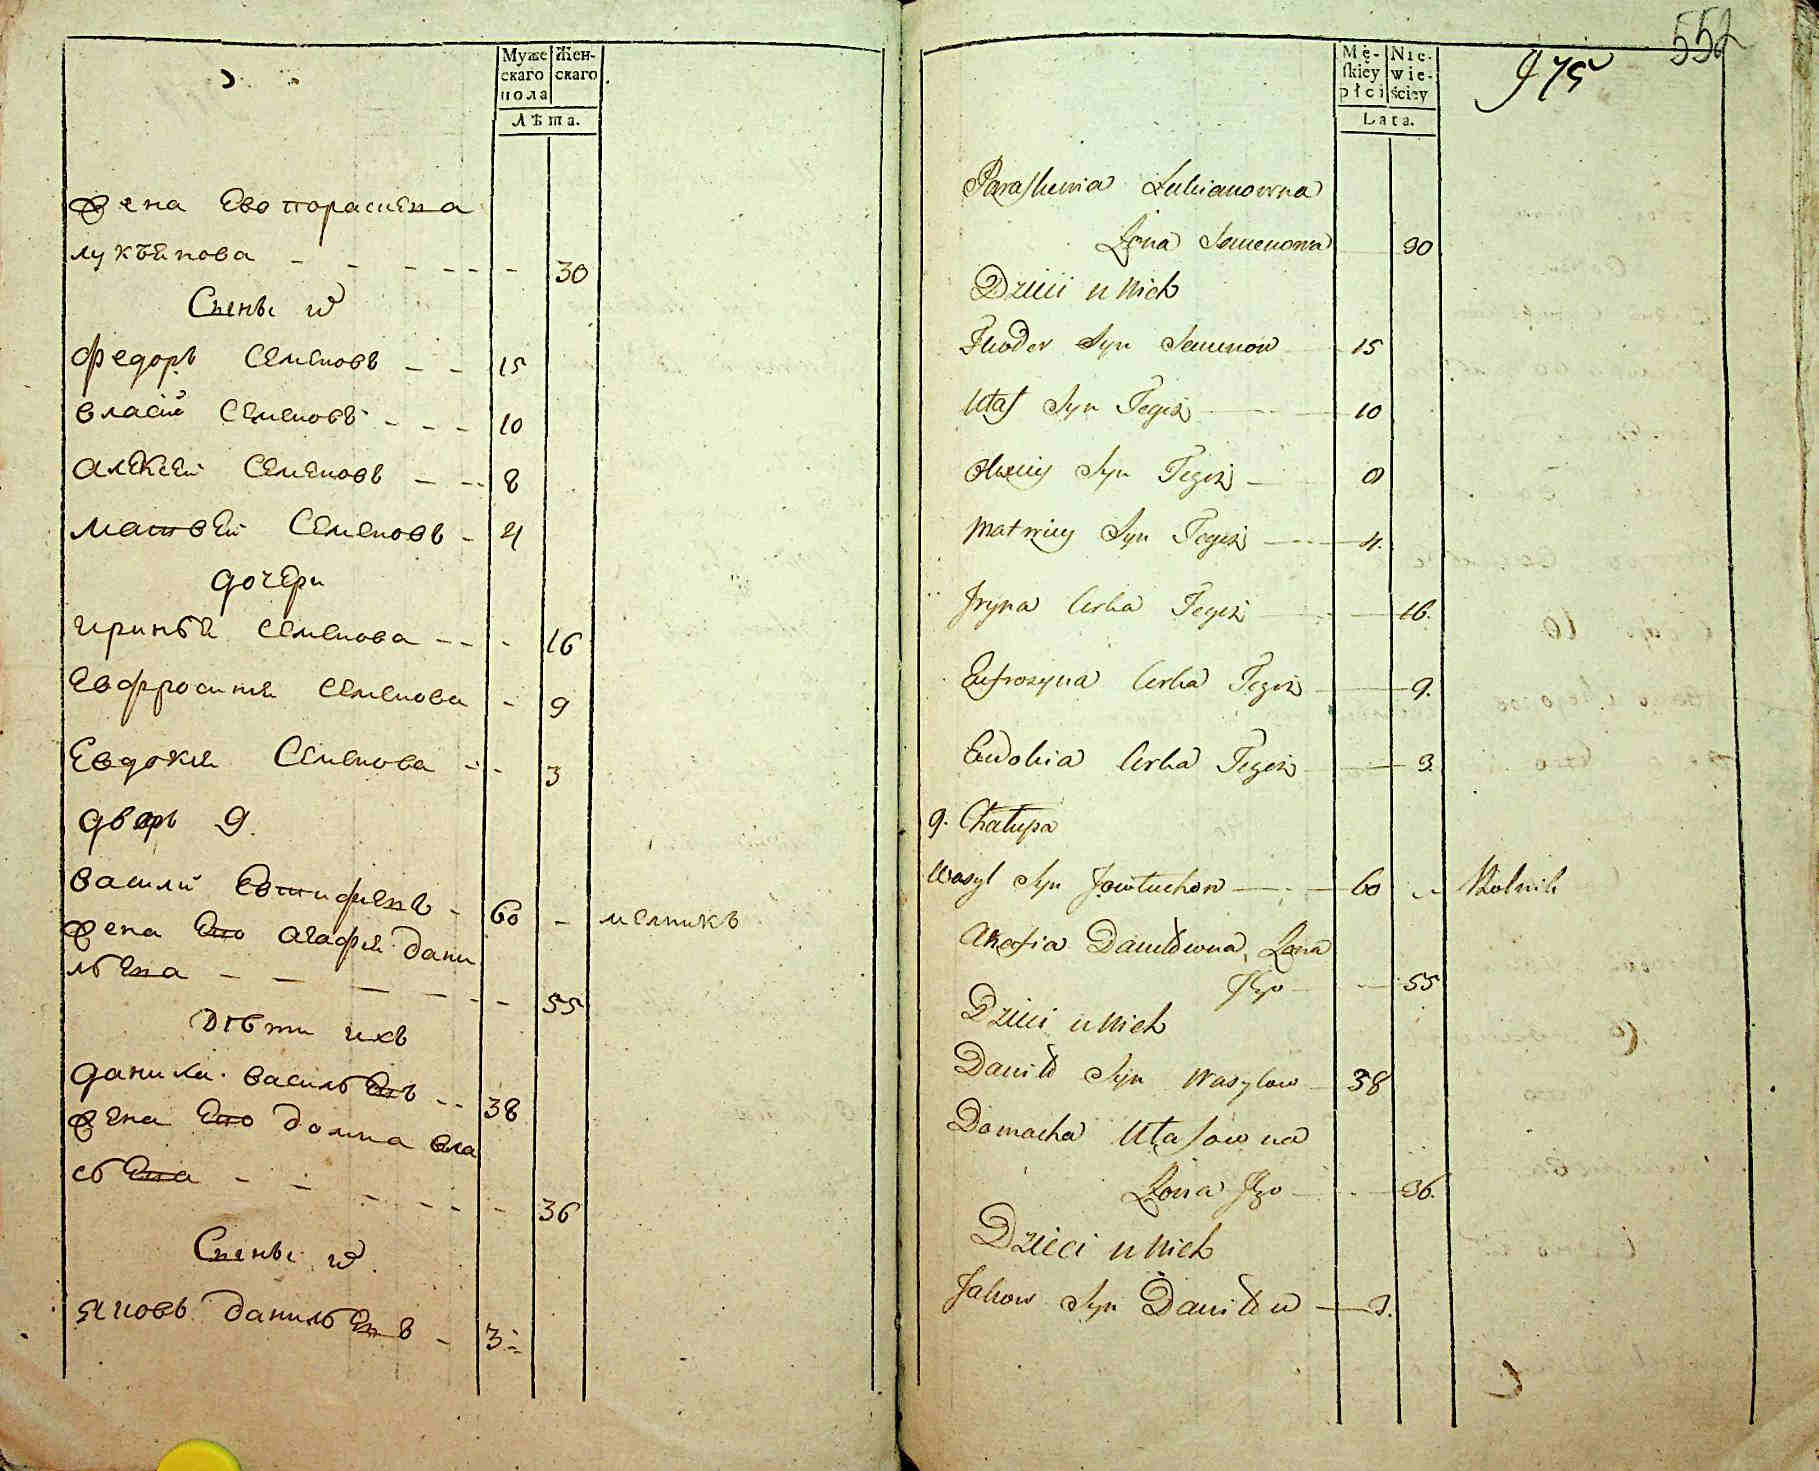 Муже скаго пола
Жен- скаго
Лѣта.
жена Его параскева
лукъянова - - - - - - 30
Сыны
федоръ Семеновъ - - 15
власий Семеновъ - - - 10
Алексей Семеновъ - - 8
матвей Семеновъ - 4
дочери
иринья Семенова - - - 16
Евфросиния Семенова - 9
Евдокия Семенова - - 3
дворъ 9.
василий - 60 - мелникъ
жена Его агафия дани
льева - - - - - - 55
Дѣти ихъ
данила васильевъ - - 38
жена Его домна вла
сьева - - - - - - 36
Сыны
яковъ данильевъ - 3
552
975
Mę- skiey płci
Nie- wie- ściey
Lata.
Paraskewia Lukianowna
Żona Semenowa 30
Dzieci u Nich
Theodor Syn Semenow 15
Ułas Syn Tegoż 10
Olexiey Syn Tegoż 8
Matwiey Syn Tegoż 4.
Jryna Corka Tegoż 16.
Eufrozyna Corka Tegoż 9.
Eudokia Corka Tegoż 3.
9. Chałupa
Wasyl Syn Jowtuchow 60 - Rolnik
Ahafia Daniłowna, Żona
Jego 55
Dzieci u Nich
Daniło Syn Wasylow 38
Domacha Ułasowna
Żona Jego 36.
Dzieci u Nich
Jakow Syn Daniłow 3.